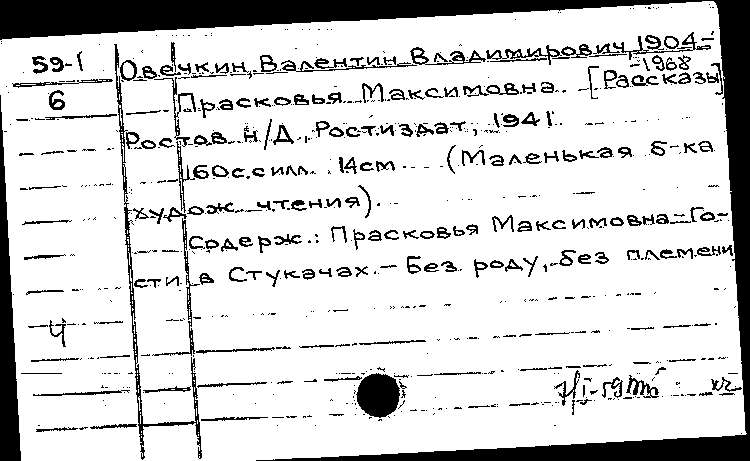 59-1 Овечкин, Валентин Владимирович, 1904-
-1968
6 Прасковья Максимовна. [Рассказы]
Ростов н/Д., Ростиздат, 1941.
160с.с илл. 14см. (Маленькая б-ка
худож. чтения).
Содерж.: Прасковья Максимовна.-Го-
сти в Стукачах.- Без роду, без племени
Ч
7/I-59